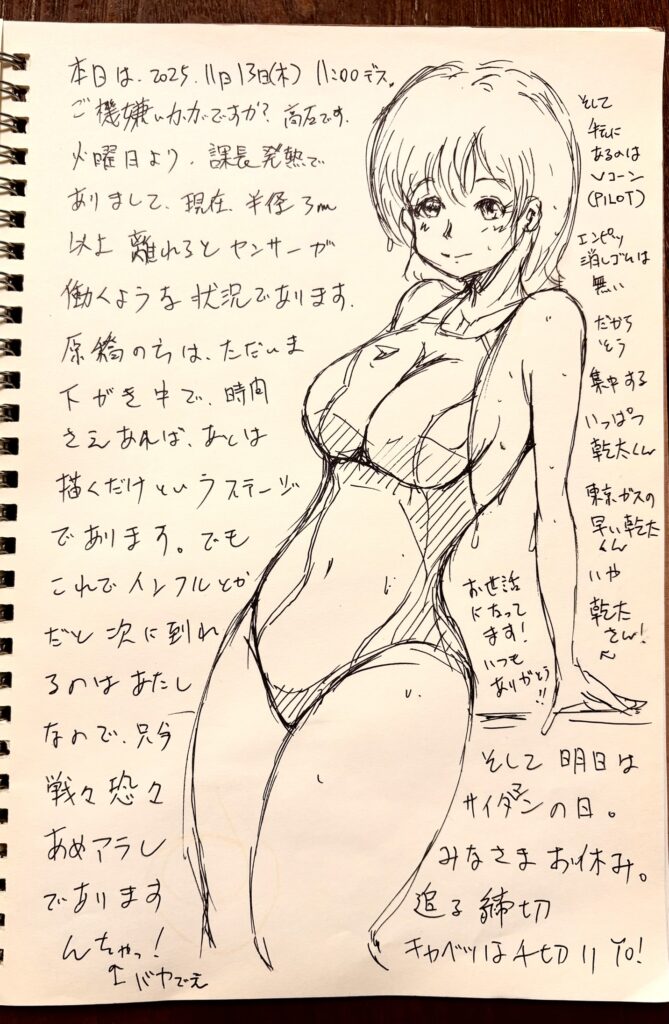 本日は、2025.11月13日(木) 11:00デス。
ご機嫌いかがですか? 高左です。
火曜日より、課長発熱で
ありまして、現在、半径3m
以上離れるとセンサーが
働くような状況であります。
原稿のちは、ただいま
下がき中で、時間
さえあれば、あとは
描くだけというステージ
であります。でも
これでインフルとか
だと次に到れ
るのはあたし
なので、只今
戦々恐々
あめアラレ
であります
んちゃっ!
↑バヤでえ
そして
私に
あるのは
Vコーン
(PILOT)
エンピツ
消しゴムは
無い
だから
そう
集中する
いっぱつ
乾太くん
東京ガスの
早い乾太
くん
いや
乾太
さん!
お世話
になって
ます!
いつも
ありがとう!!
そして明日は
サイダンの日。
みなさまお休み。
迫る締切
キャベツは千切りYo!